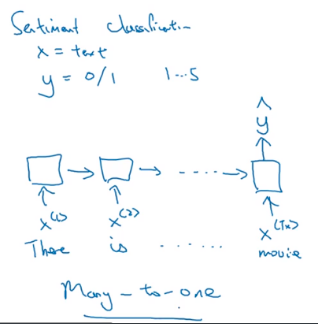 Sentiment classification
x = text
y = 0/1 1...5
ŷ
x^(1) x^(2) x^(Tx)
There is ...... movie
Many-to-one